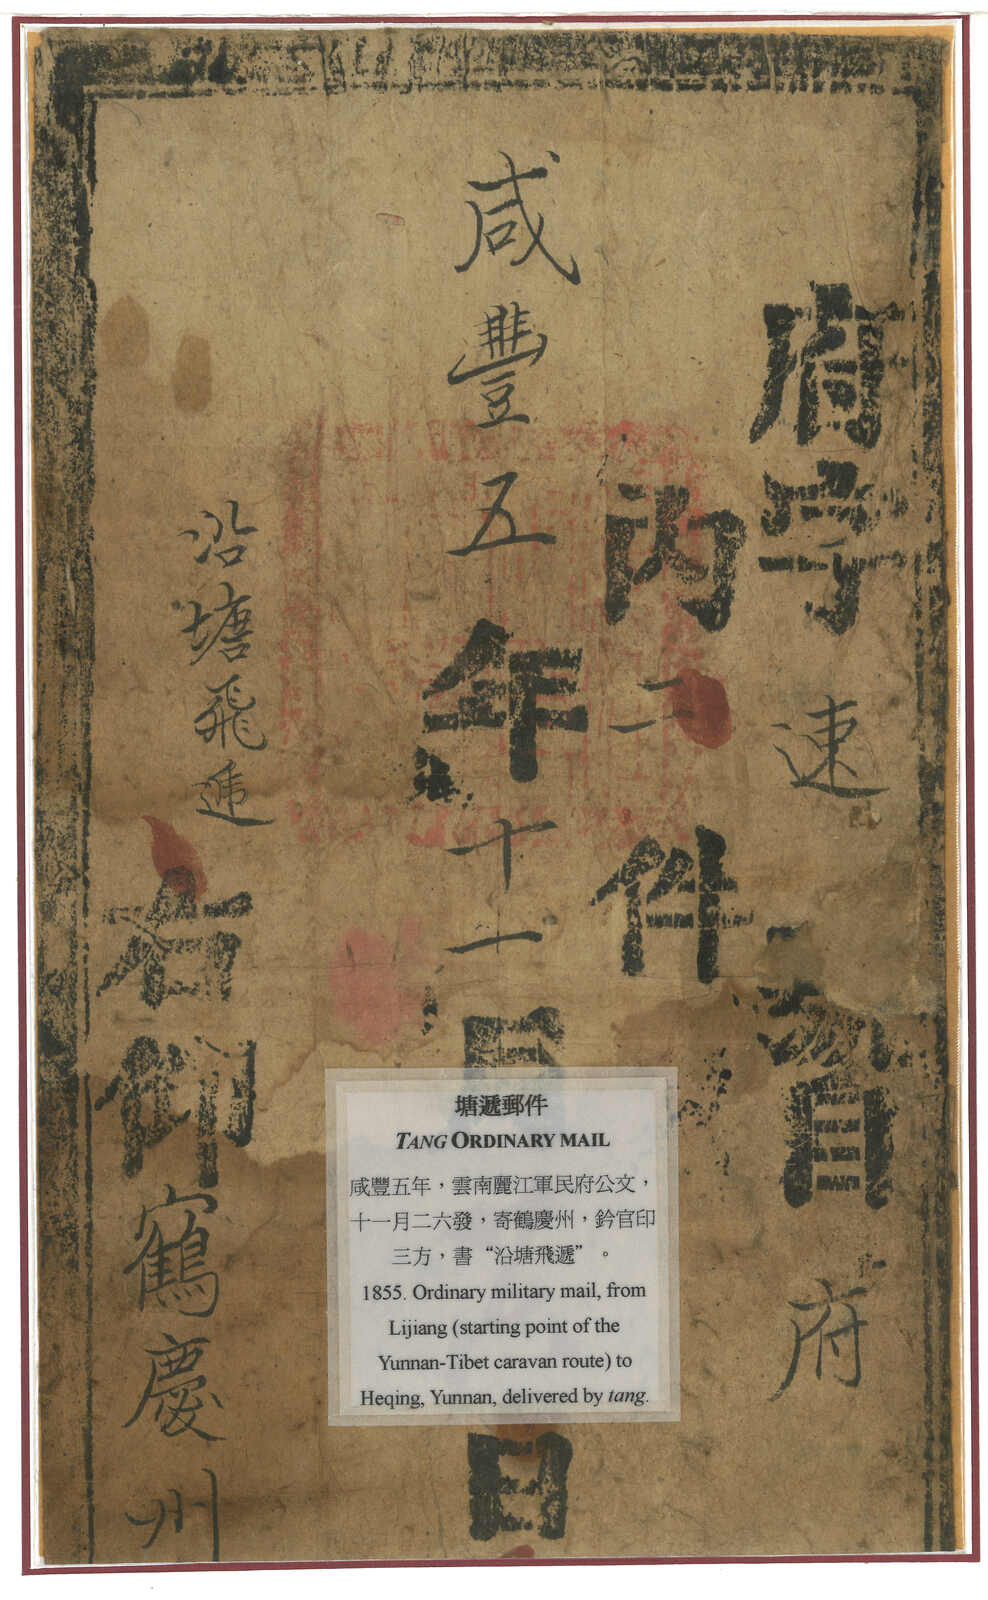 府字速
府
內二件
咸豐五年十一月
日
沿塘飛遞
右仰鶴慶州
塘遞郵件
TANG ORDINARY MAIL
咸豐五年，雲南麗江軍民府公文，
十一月二六發，寄鶴慶州，鈐官印
三方，書“沿塘飛遞”。
1855. Ordinary military mail, from
Lijiang (starting point of the
Yunnan-Tibet caravan route) to
Heqing, Yunnan, delivered by tang.